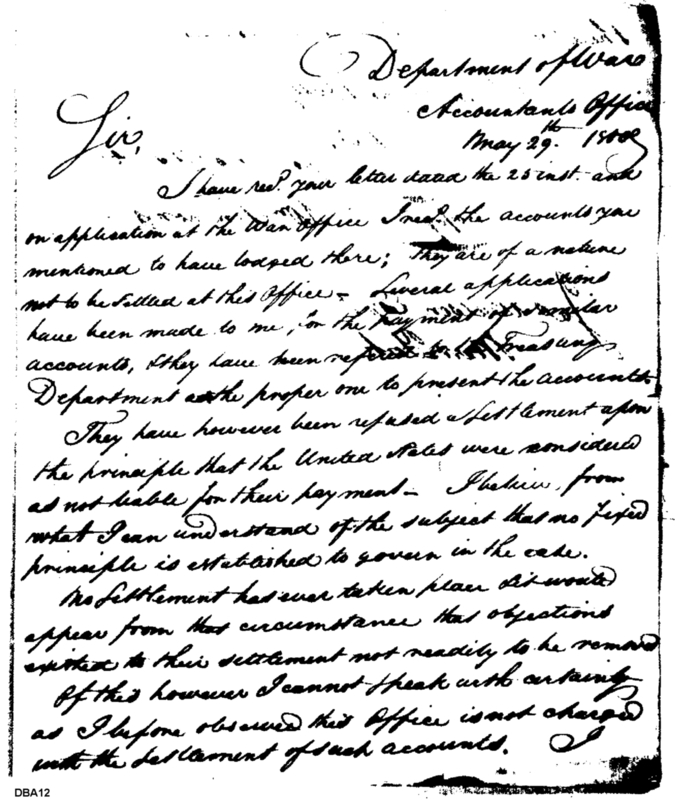 Department of War
Accountants Office
May 29th. 1800
Sir,
I have recd. your letter dated the 25 inst. and
on application at the War Office I recd. the accounts you
mentioned to have lodged there; They are of a nature
not to be settled at this Office - Several applications
have been made to me, for the payment of similar
accounts, & they have been referred to the Treasury
Department as the proper one to present the accounts.
They have however been refused a Settlement upon
the principle that the United States were considered
as not liable for their payment - I believe, from
what I can understand of the subject that no fixed
principle is established to govern in the case.
No Settlement has ever taken place & it would
appear from that circumstance that objections
existed to their settlement not readily to be removed
Of this however I cannot speak with certainty
as I before observed this Office is not charged
with the Settlement of such accounts. I
DBA12